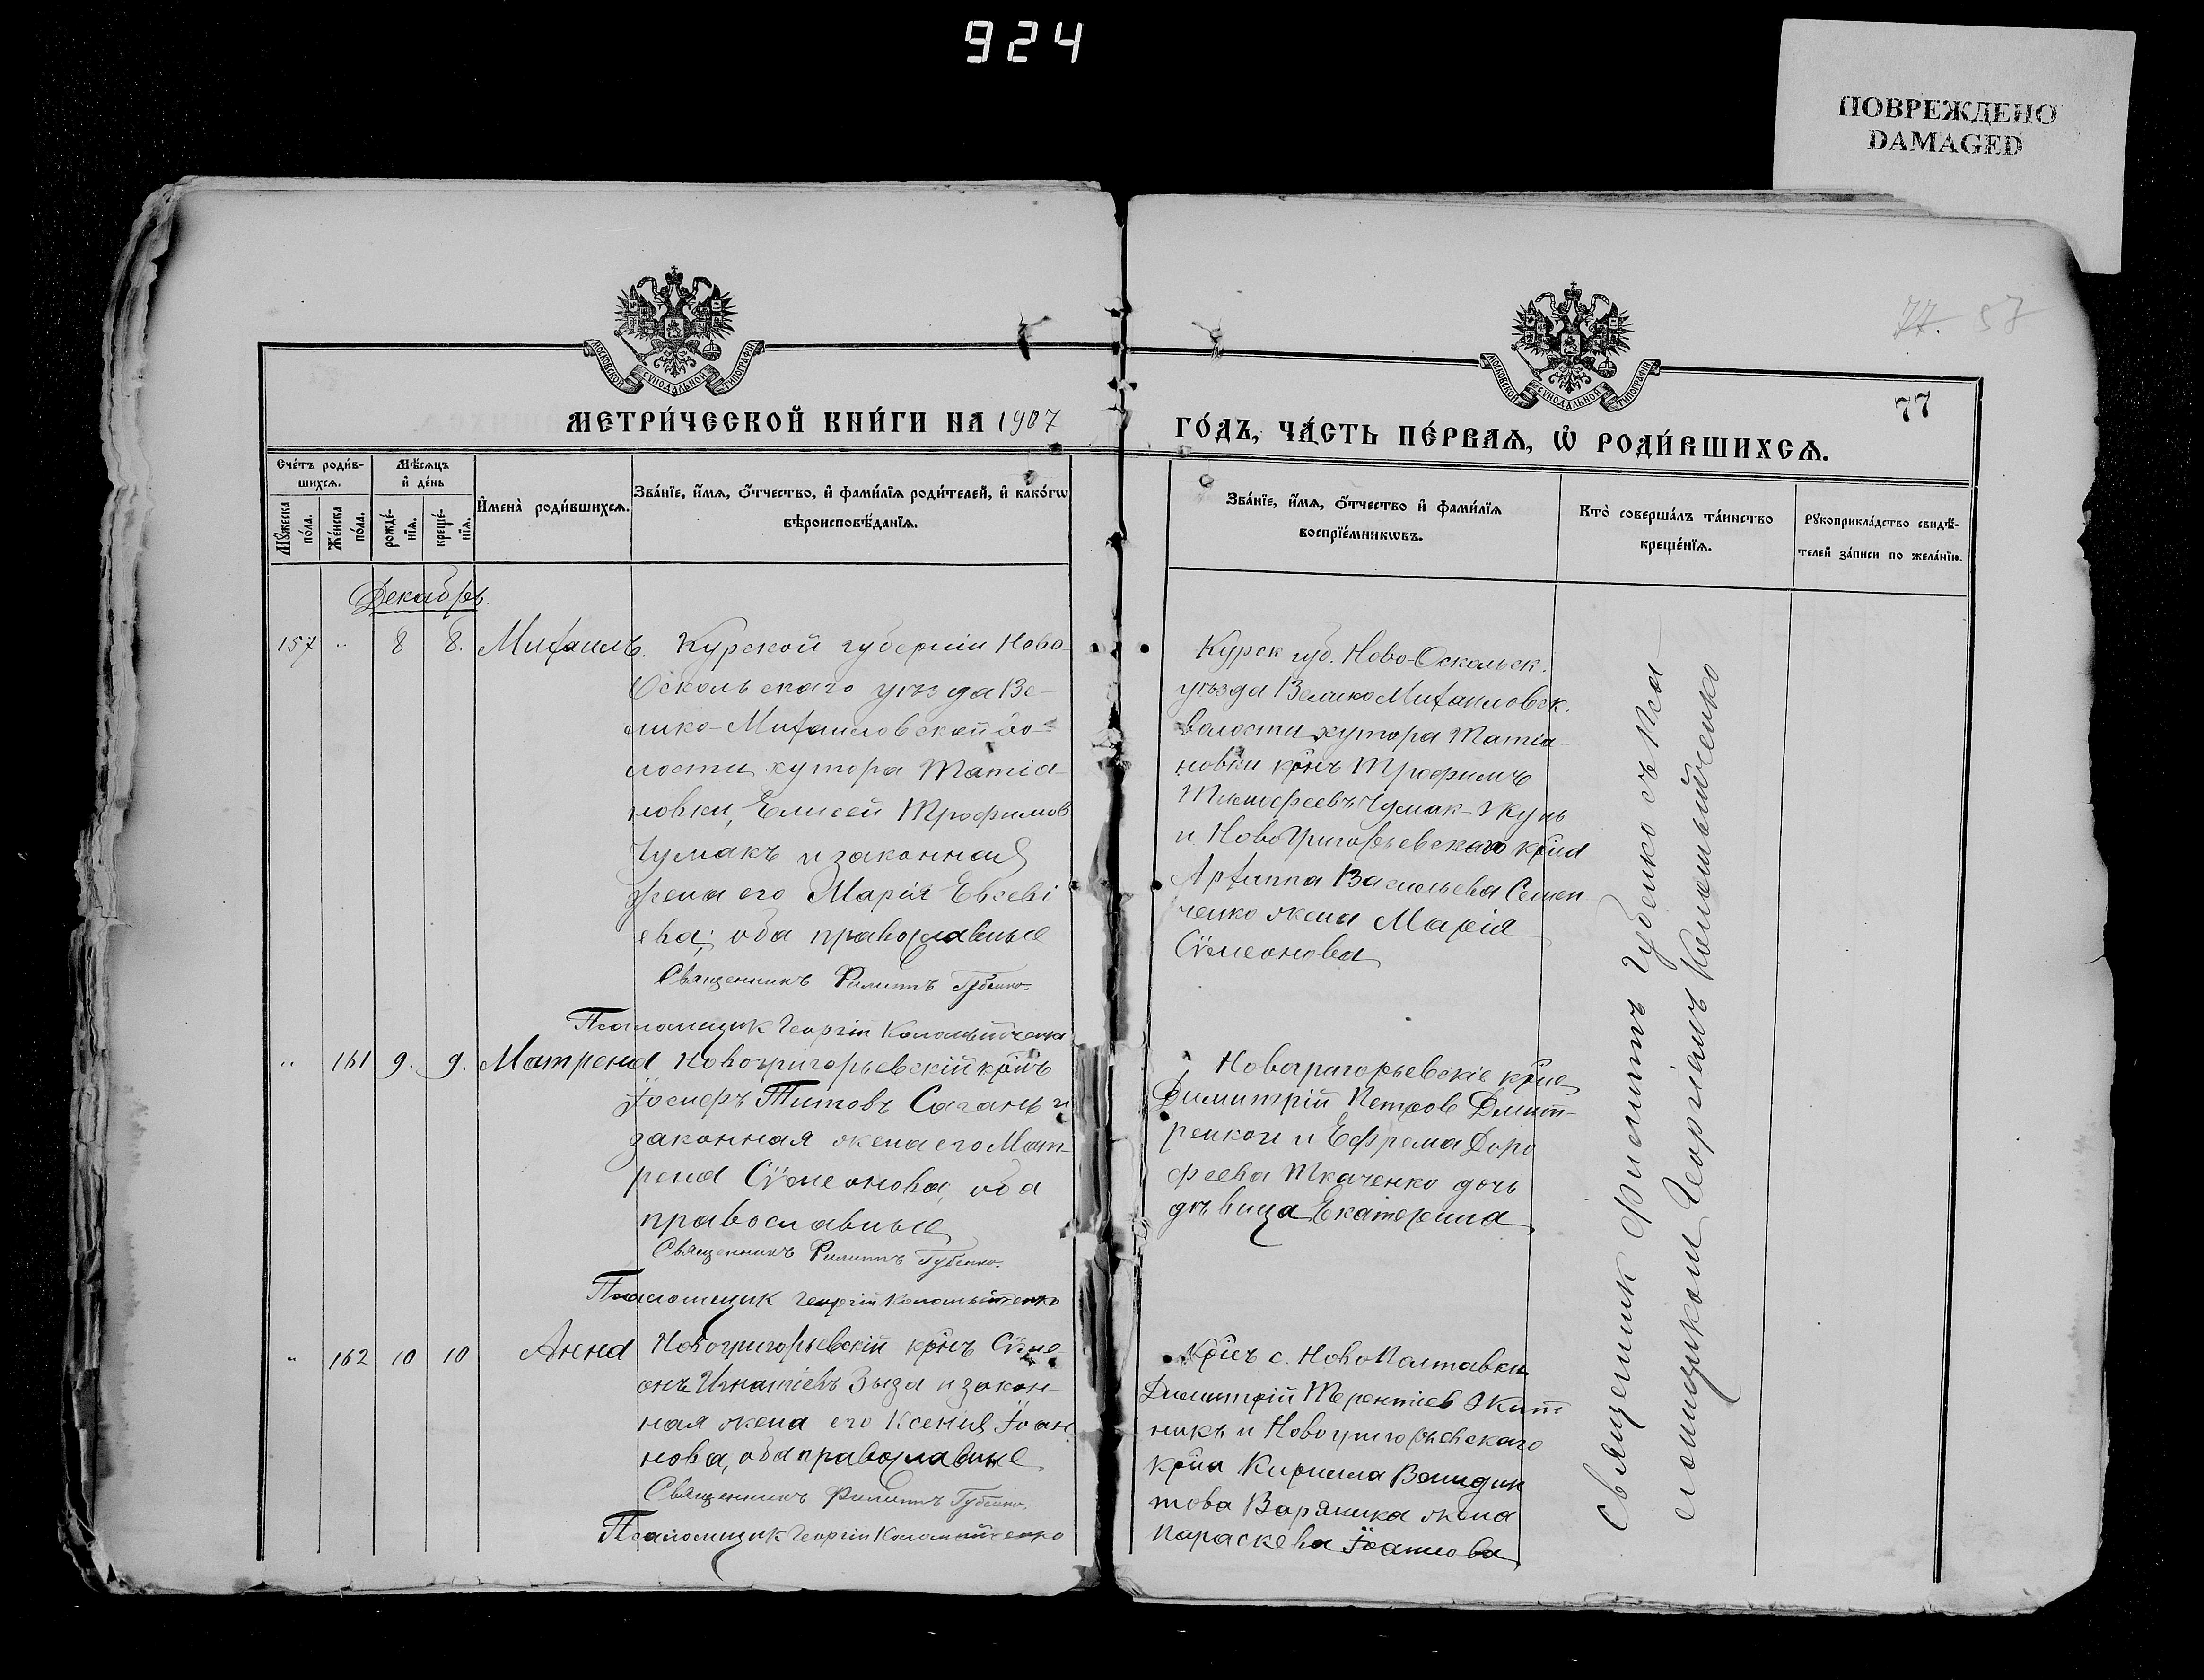 924
ПОВРЕЖДЕНО
DAMAGED
77. 57
77
МОСКОВСКОЙ СѴНОДАЛЬНОЙ ТИПОГРАФІИ
МОСКОВСКОЙ СѴНОДАЛЬНОЙ ТИПОГРАФІИ
МЕТРИ́ЧЕСКОЙ КНИ́ГИ НА 1907
ГО́ДЪ, ЧА́СТЬ ПЕ́РВАѦ, Ѡ҆ РОДИ́ВШИХСѦ.
Сче́тъ роди́в-
шихсѧ.
Мꙋ́жеска по́ла.
Же́нска по́ла.
Мѣ́сѧцъ
и҆ де́нь
рожде́-
нїѧ.
креще́-
нїѧ.
И҆мена̀ роди́вшихсѧ.
Зва́нїе, и҆́мѧ, ѻ҆́тчество, и҆ фами́лїѧ роди́телей, и҆ како́гѡ
вѣроисповѣ́данїѧ.
Зва́нїе, и҆́мѧ, ѻ҆́тчество и҆ фами́лїѧ
воспрїе́мникѡвъ.
Кто̀ соверша́лъ та́инство
креще́нїѧ.
Рꙋкоприкла́дство свидѣ́-
телей за́писи по жела́нїю.
Декабрь.
157 " 8 8. Михаилъ.
Курской губерніи Ново-
Оскольскаго уѣзда Ве-
лико-Михайловской во-
лости хутора Матіа-
новки, Елисей Трофимов
Чумакъ и законная
жена его Марія Евсеві
ева; оба православные
Священникъ Филиппъ Губенко.
Псаломщик Георгій Коломыйченко
Курск. губ. Ново-Оскольск.
уѣзда Велико Михайловск.
волости хутора Матіа-
новки крн҃ъ Трофимъ
Тимофеевъ Чумак-Жунь
и НовоГригорьевскаго крн҃а
Архиппа Васильева Семен
ченко жена Марія
Сѵмеонова
" 161 9. 9. Матрена
Новогригорьевскій крн҃ъ
Іосифъ Титовъ Саганъ и
законная жена его Мат-
рена Сѵмеонова, оба
православные
Священникъ Филиппъ Губенко.
Псаломщик Георгій Коломыйченко
Новогригорьевскіе крн҃е
Димитрій Петров Дмит-
ренко и Ефрема Доро
феева Ткаченко дочь
дѣвица Екатерина
" 162 10 10 Анна
Новогригорьевскій крн҃ъ Сѵме
онъ Игнатіевъ Зыза и закон-
ная жена его Ксенія Іоан
нова, оба православные
Священникъ Филиппъ Губенко.
Псаломщик Георгій Коломыйченко
Крн҃ъ с. НовоПолтавки
Димитрій Терентіев Жит
никъ и Новогригорьевскаго
крн҃а Кирилла Венидик
това Варяника жена
Параскева Іоаннова
Священник Филиппъ Губенко съ Пса-
ломщиком Георгіемъ Коломыйченко